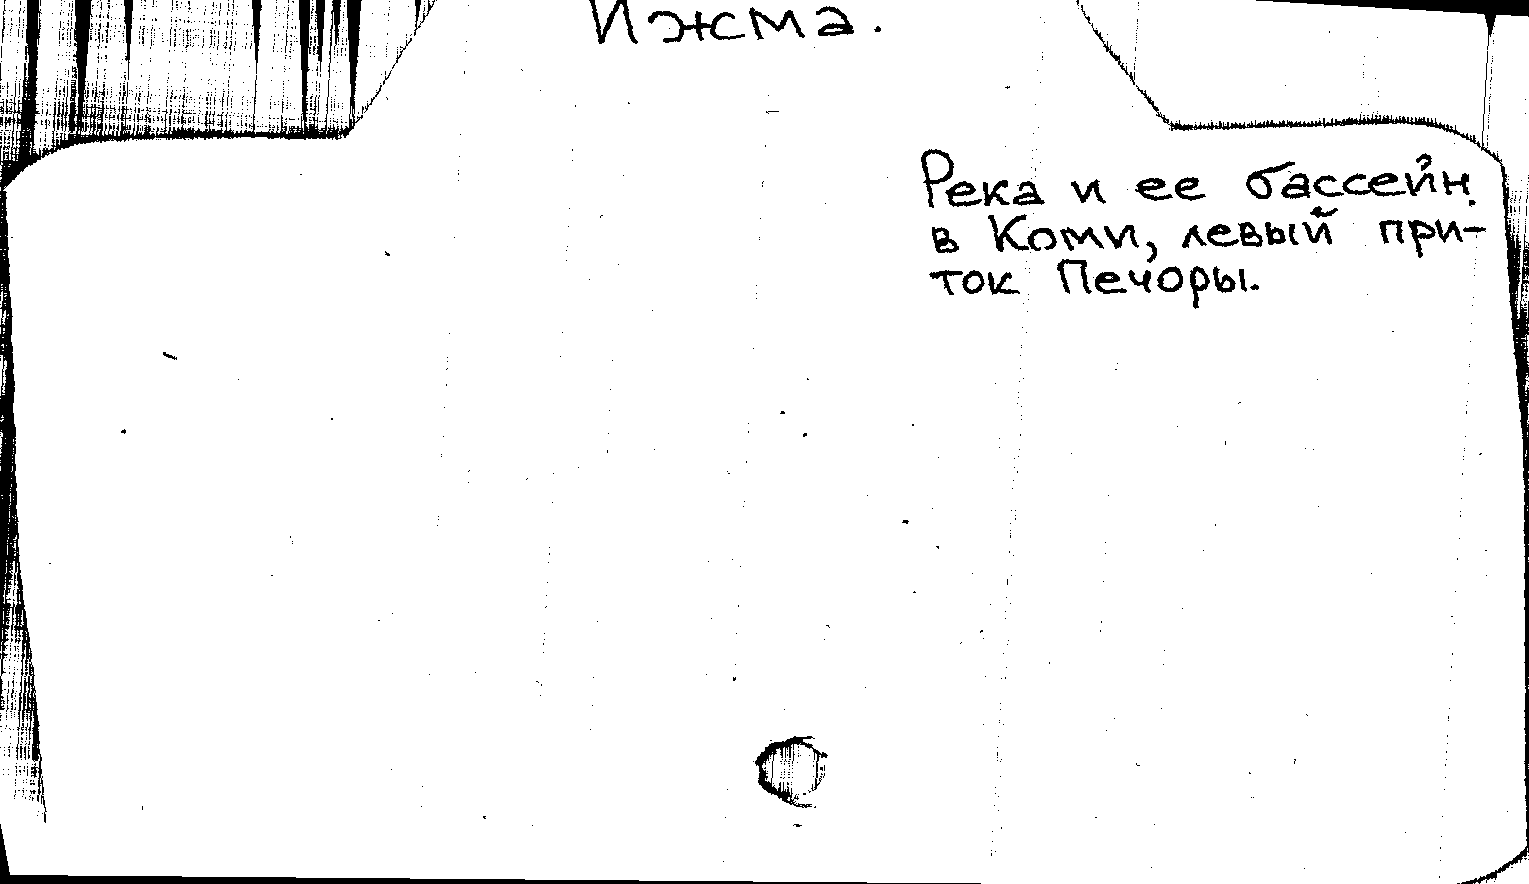 Ижма.
Река и ее бассейн
в Коми, левый при-
ток Печоры.